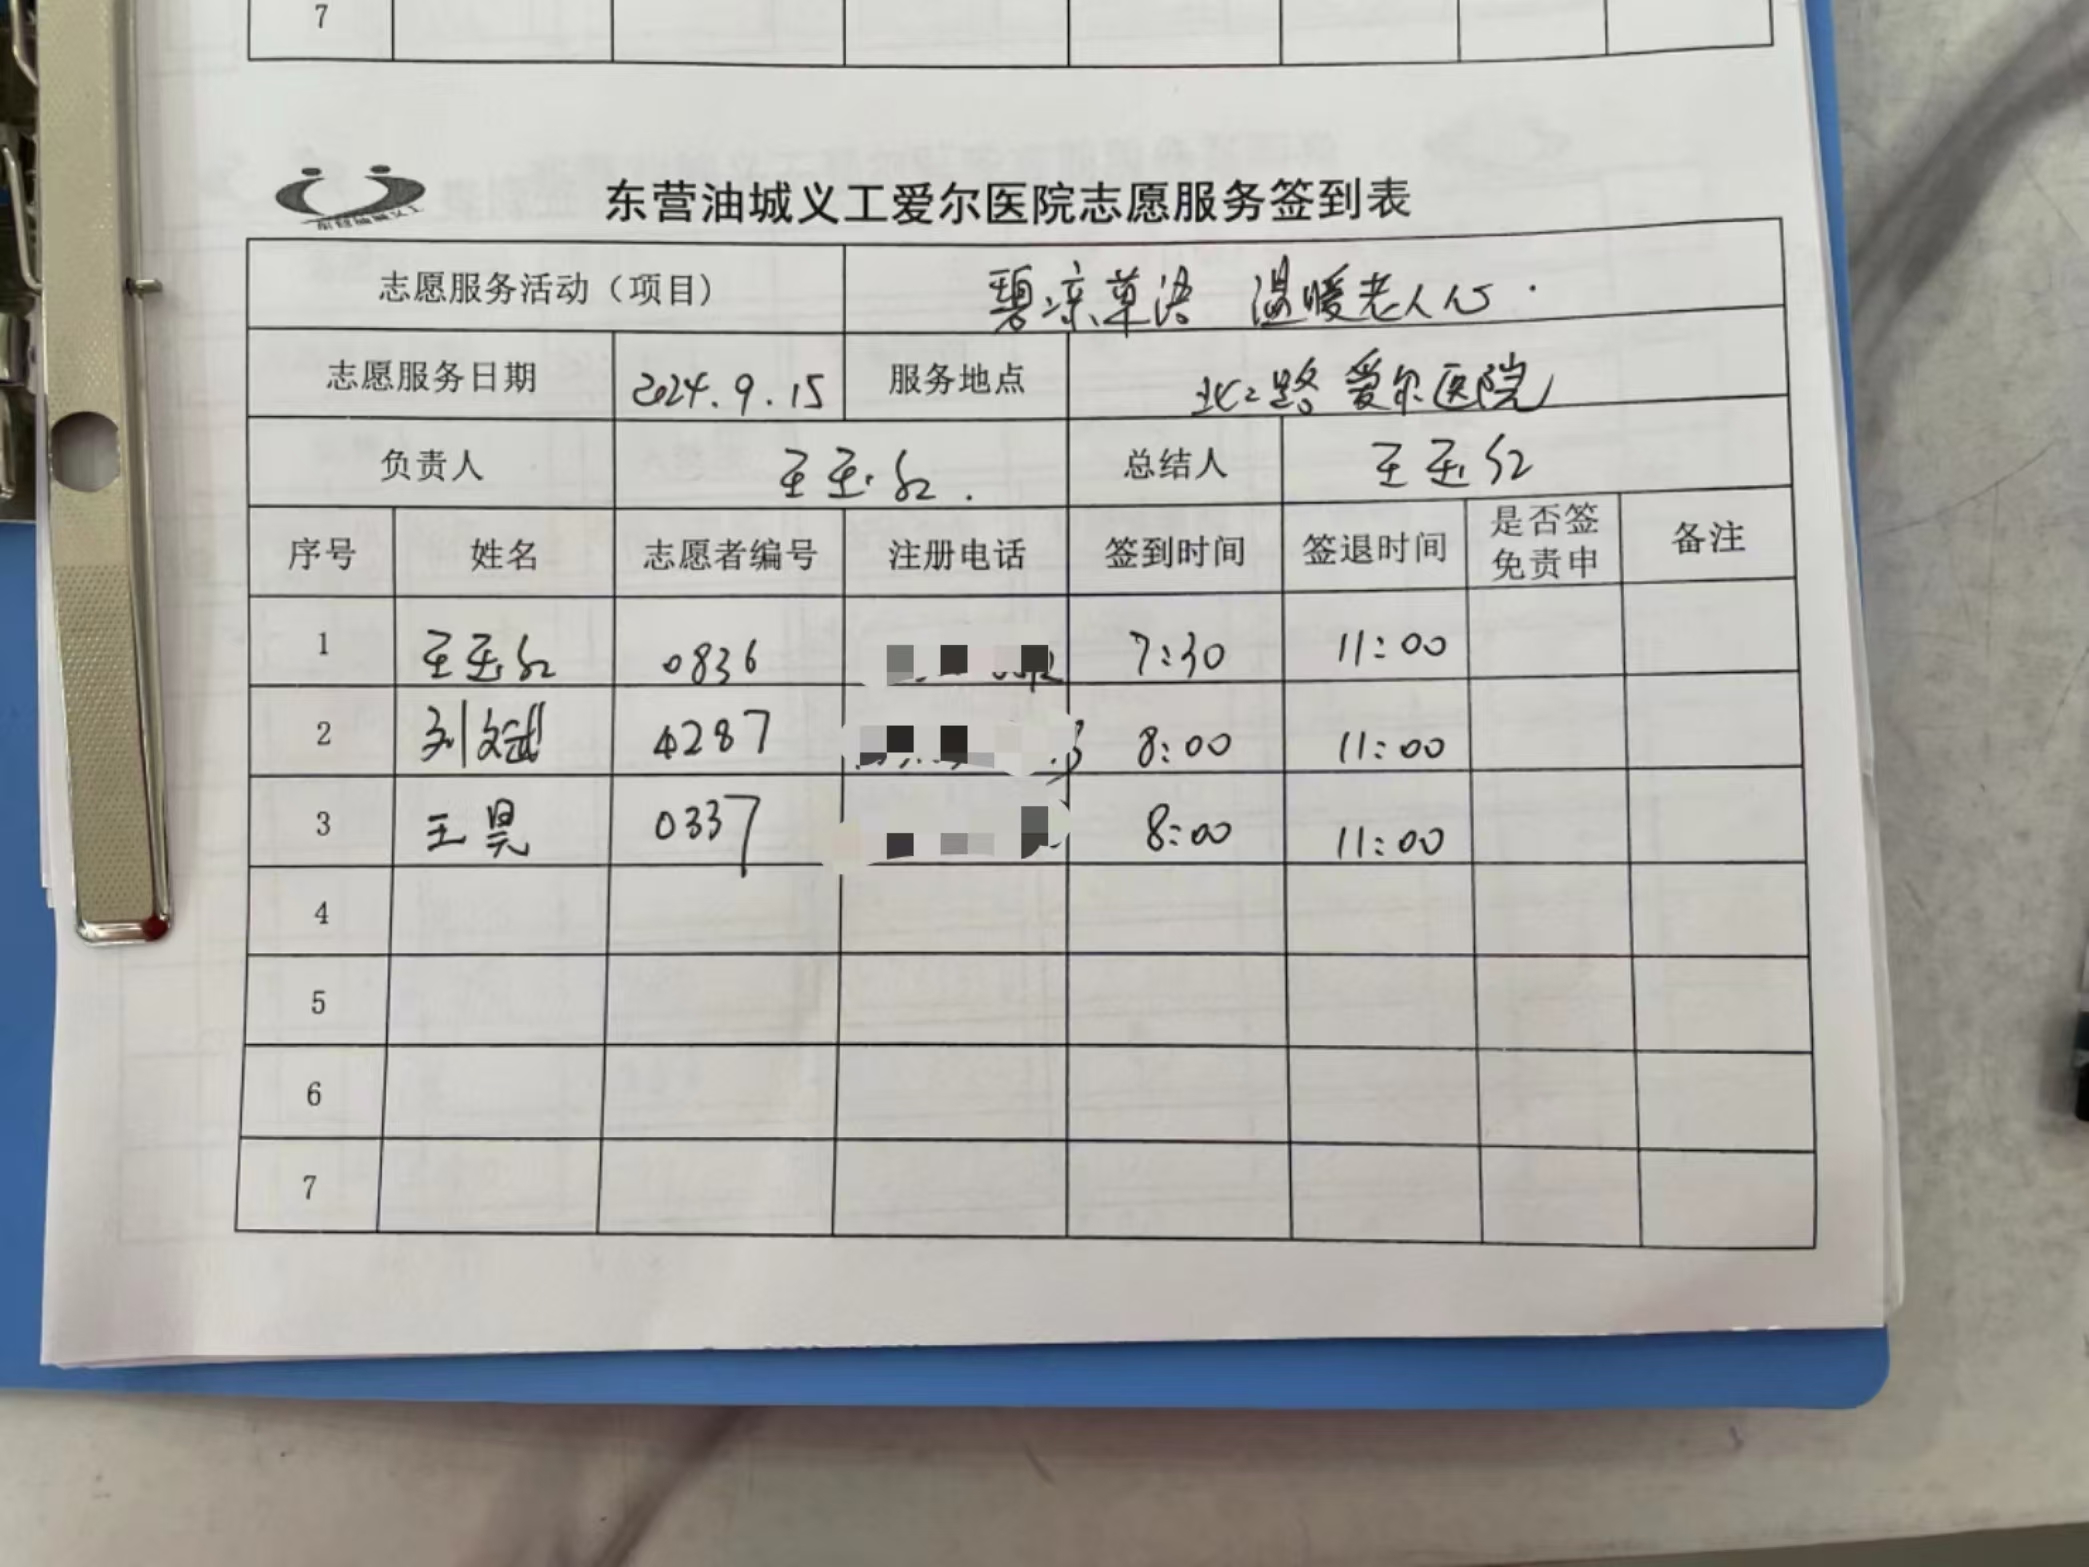 7
东营油城义工
东营油城义工爱尔医院志愿服务签到表
志愿服务活动（项目） 温暖老人心
志愿服务日期 2024.9.15 服务地点 北二路 爱尔医院
负责人 王玉红 总结人 王玉红
序号 姓名 志愿者编号 注册电话 签到时间 签退时间 是否签免责申 备注
1 王玉红 0836 7:30 11:00
2 刘文斌 4287 8:00 11:00
3 王昊 0337 8:00 11:00
4
5
6
7